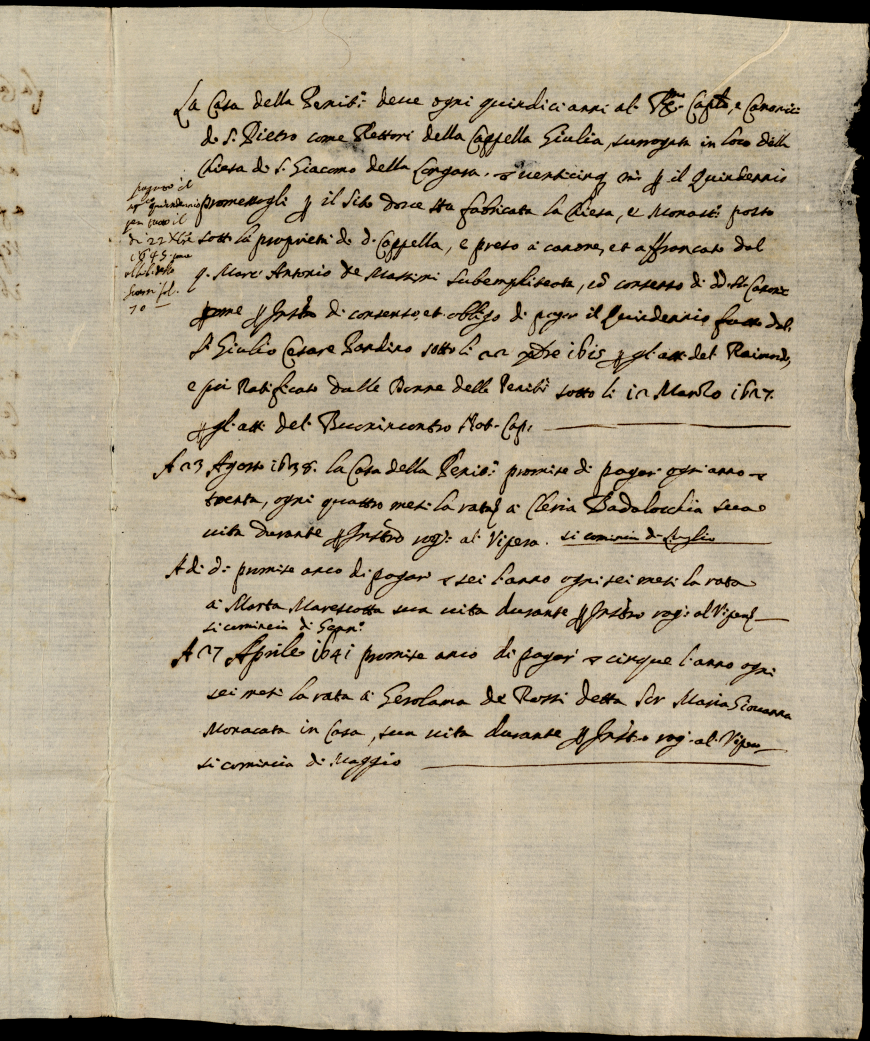 La Casa della Penit.ᵃ deve ogni quindici anni al R.mo Capitolo, e Canonici
di S. Pietro come Rettori della Cappella Giulia, surrogata in loco della
Chiesa di S. Giacomo della Longara ∇ venticinq. m.ᵃ ꝑ il Quindennio
promessogli ꝑ il Sito dove sta fabricata la Chiesa, et Monast.º posto
sotto la proprietà di d.ᵃ Cappella, e preso à canone, et affrancato dal
q. Marc'Antonio de Massimi Subemphiteota, cō consenso di dd. SS.ri Canonici
come ꝑ Instro di consenso, et obligo di pagar il Quindennio fatto dal
S. Giulio Cesare sotto li 22 1615 ꝑ gl'atti del Raimondo,
e poi Ratificato dalle Donne delle Penit.ᵉ sotto li 12 Marzo 1627.
ꝑ gl'atti del Buonincontro Not. Cap.
pagato il
quindennio
di 22 Xbre
1645
fol.
70
A 23 Agosto 1638. la Casa della Penit.ᵃ promise di pagar ogni anno ∇
trenta, ogni quattro mesi la rata à Cleria Badalocchia sua
vita durante ꝑ Instro rog.º al Vipera. si comincia di Luglio
A dì dº promise anco di pagar ∇ sei l'anno ogni sei mesi la rata
à Marta Marescotta sua vita durante ꝑ Instro rog.º al Vipera
si comincia di Genn.º
A 27 Aprile 1641 promise anco di pagar ∇ cinque l'anno ogni
sei mesi la rata à Gerolama de Rossi detta Sor Maria Giovanna
Monacata in Casa, sua vita durante ꝑ Instro rog.º al Vipera
si comincia di Maggio